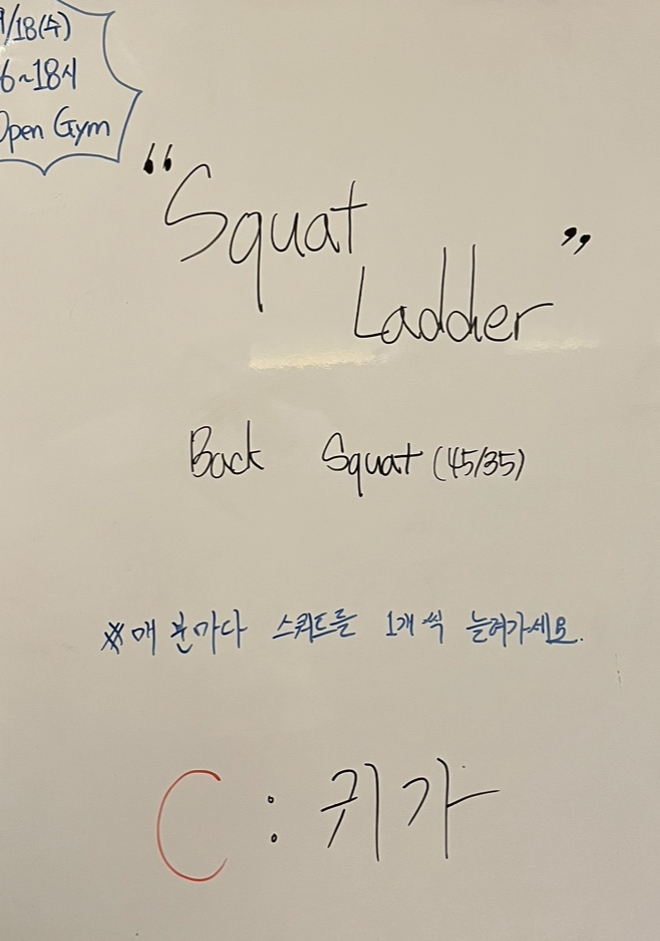 /18(수)
6~18시
Open Gym
“Squat
Ladder”
Back Squat (45/35)
※ 매 분마다 스쿼트를 1개 씩 늘려가세요.
C : 귀가